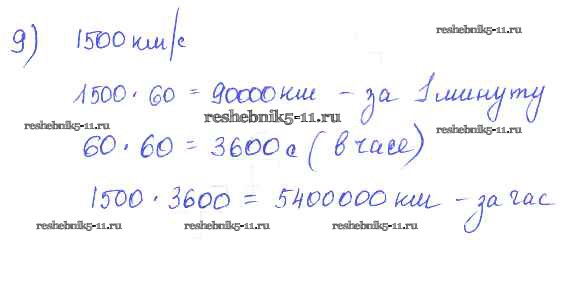 reshebnik5-11.ru
9) 1500 км/с
1500 · 60 = 90000 км – за 1 минуту
reshebnik5-11.ru reshebnik5-11.ru reshebnik5-11.ru
60 · 60 = 3600 с (в часе)
1500 · 3600 = 5400000 км – за час
reshebnik5-11.ru reshebnik5-11.ru reshebnik5-11.ru